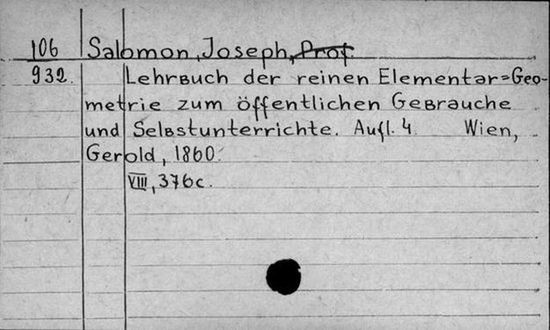 106 Salomon, Joseph, Prof.
932. Lehrbuch der reinen Elementar=Geo-
metrie zum öffentlichen Gebrauche
und Selbstunterrichte. Aufl. 4 Wien,
Gerold, 1860.
VIII, 376 c.